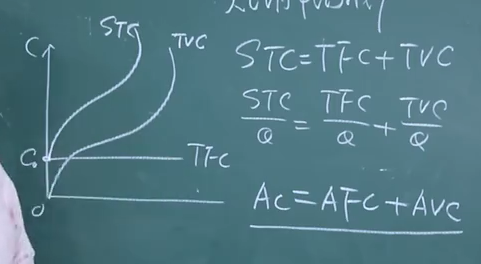 C
STC
TVC
C₀
TFC
0
STC=TFC+TVC
STC/Q = TFC/Q + TVC/Q
AC=AFC+AVC